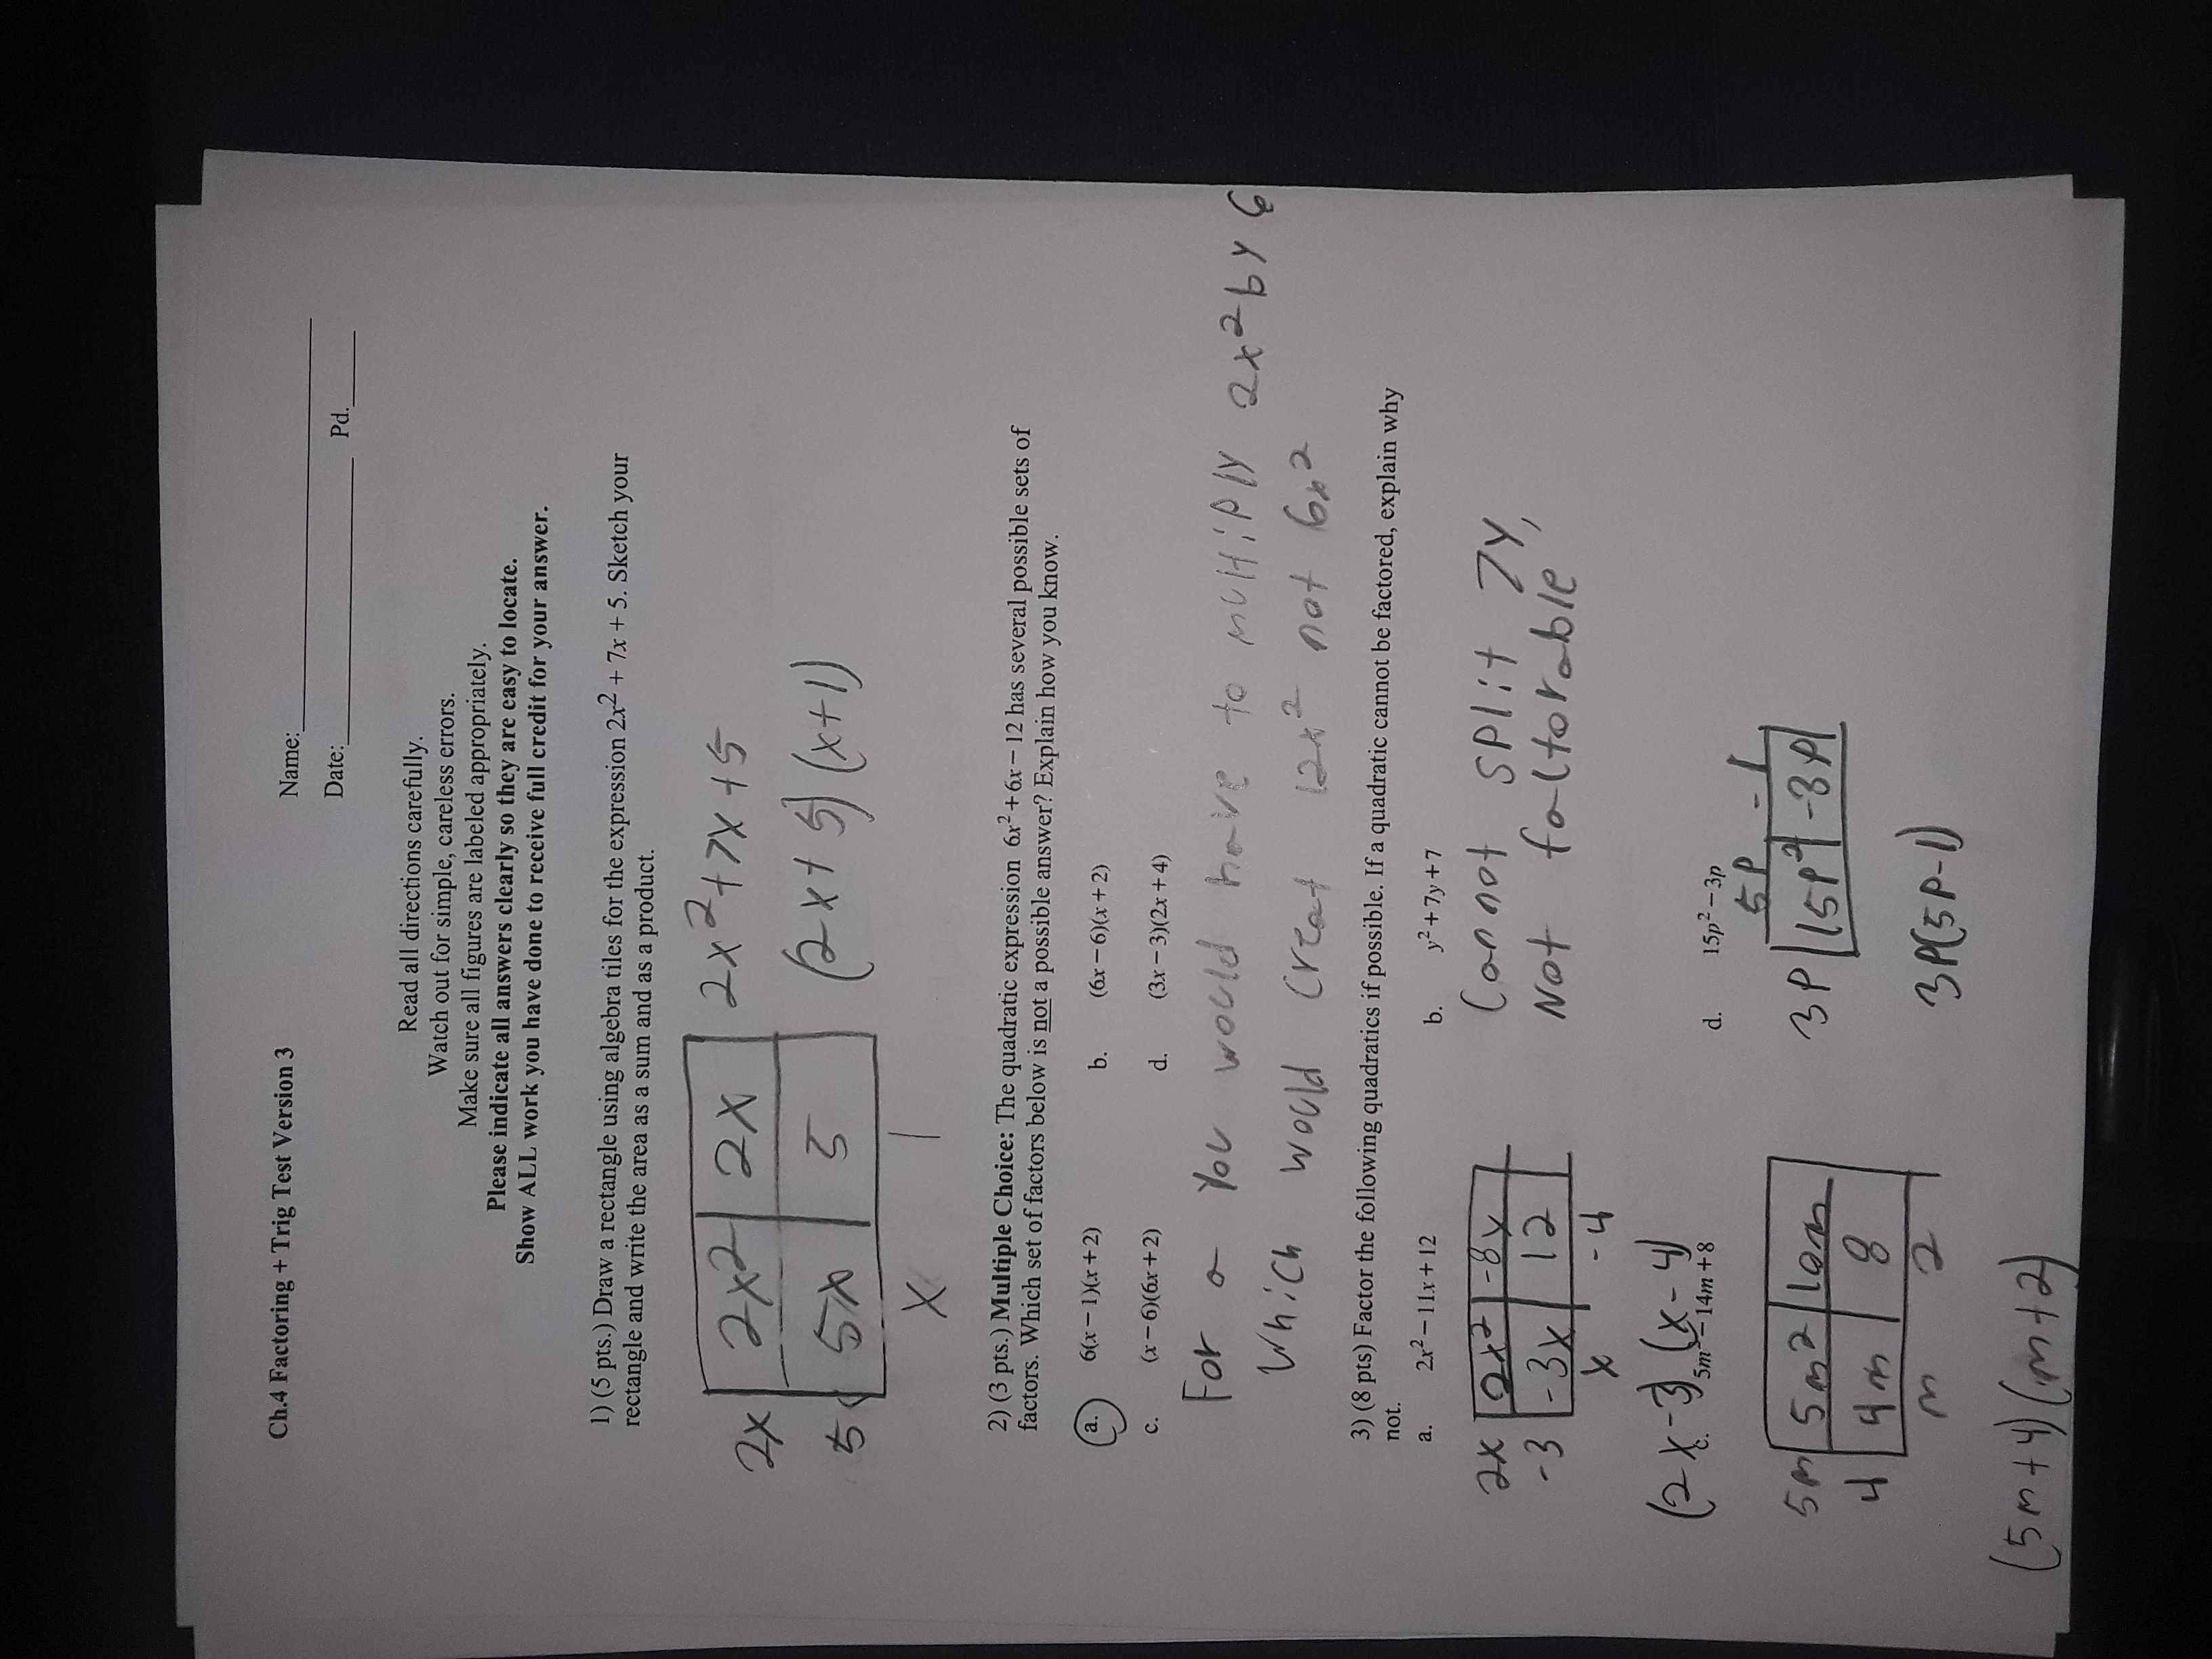 Ch.4 Factoring + Trig Test Version 3
Name:
Date: Pd.
Read all directions carefully.
Watch out for simple, careless errors.
Make sure all figures are labeled appropriately.
Please indicate all answers clearly so they are easy to locate.
Show ALL work you have done to receive full credit for your answer.
1) (5 pts.) Draw a rectangle using algebra tiles for the expression 2x² + 7x + 5. Sketch your
rectangle and write the area as a sum and as a product.
2x 2x² 2x 2x²+7x+5
5 5x 5 (2x+5)(x+1)
x 1
2) (3 pts.) Multiple Choice: The quadratic expression 6x²+6x−12 has several possible sets of
factors. Which set of factors below is not a possible answer? Explain how you know.
a. 6(x−1)(x+2) b. (6x−6)(x+2)
c. (x−6)(6x+2) d. (3x−3)(2x+4)
For a You would have to multiply 2x² by 6
Which would creat 12x² not 6x²
3) (8 pts) Factor the following quadratics if possible. If a quadratic cannot be factored, explain why
not.
a. 2x²−11x+12 b. y²+7y+7
2x 2x² -8x Cannot split 7y,
-3 -3x 12 Not factorable
x -4
(2x-3)(x-4)
c. 5m²−14m+8 d. 15p²−3p
5p -1
5m 5m² 10m 3p 15p² -3p
4 4m 8
m 2 3p(5p-1)
(5m+4)(m+2)